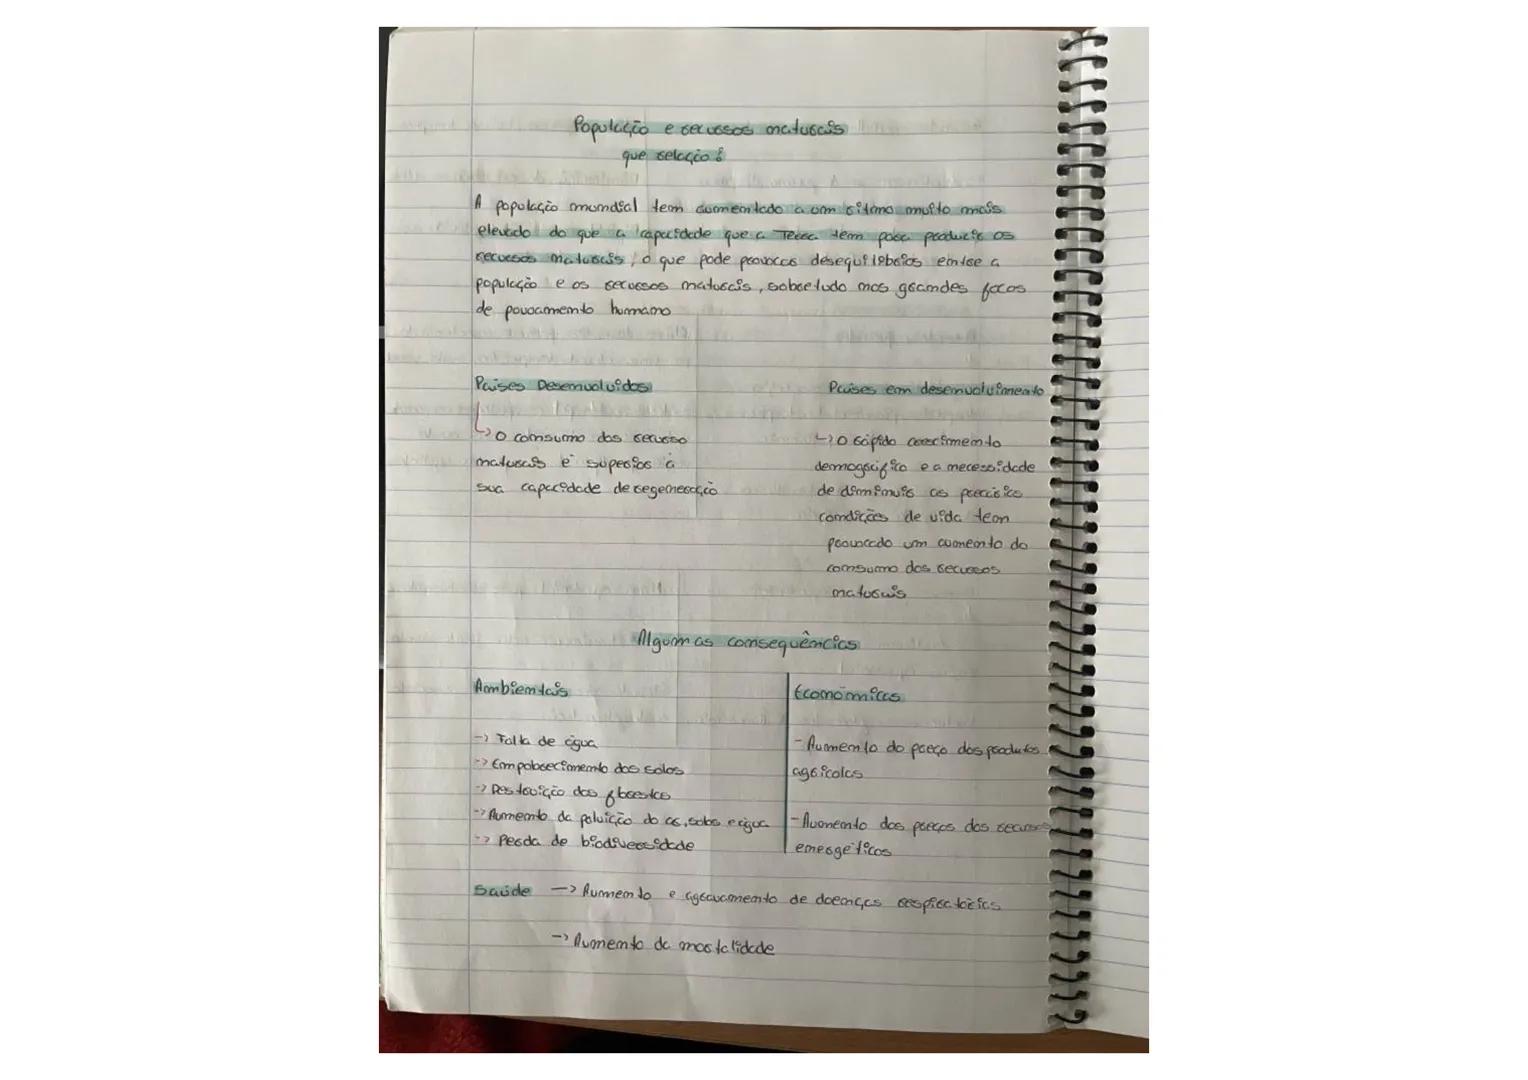 População e recursos naturais
que relação?
A população mundial tem aumentado a um ritmo muito mais
elevado do que a capacidade que a Terra tem para produzir os
recursos naturais, o que pode provocar desequilíbrios entre a
população e os recursos naturais, sobretudo nos grandes focos
de povoamento humano
Países Desenvolvidos
↳ O consumo dos recurso
naturais é superior à
sua capacidade de regeneração
Países em desenvolvimento
↳ O rápido crescimento
demográfico e a necessidade
de diminuir as precárias
condições de vida tem
provocado um aumento do
consumo dos recursos
naturais
Algumas consequências
Ambientais
-> Falta de água
-> Empobrecimento dos solos
-> Destruição das florestas
-> Aumento da poluição do ar, solos e água
-> Perda de biodiversidade
Económicas
- Aumento do preço dos produtos
agrícolas
- Aumento dos preços dos recursos
energéticos
Saúde -> Aumento e agravamento de doenças respiratórias
-> Aumento da mortalidade